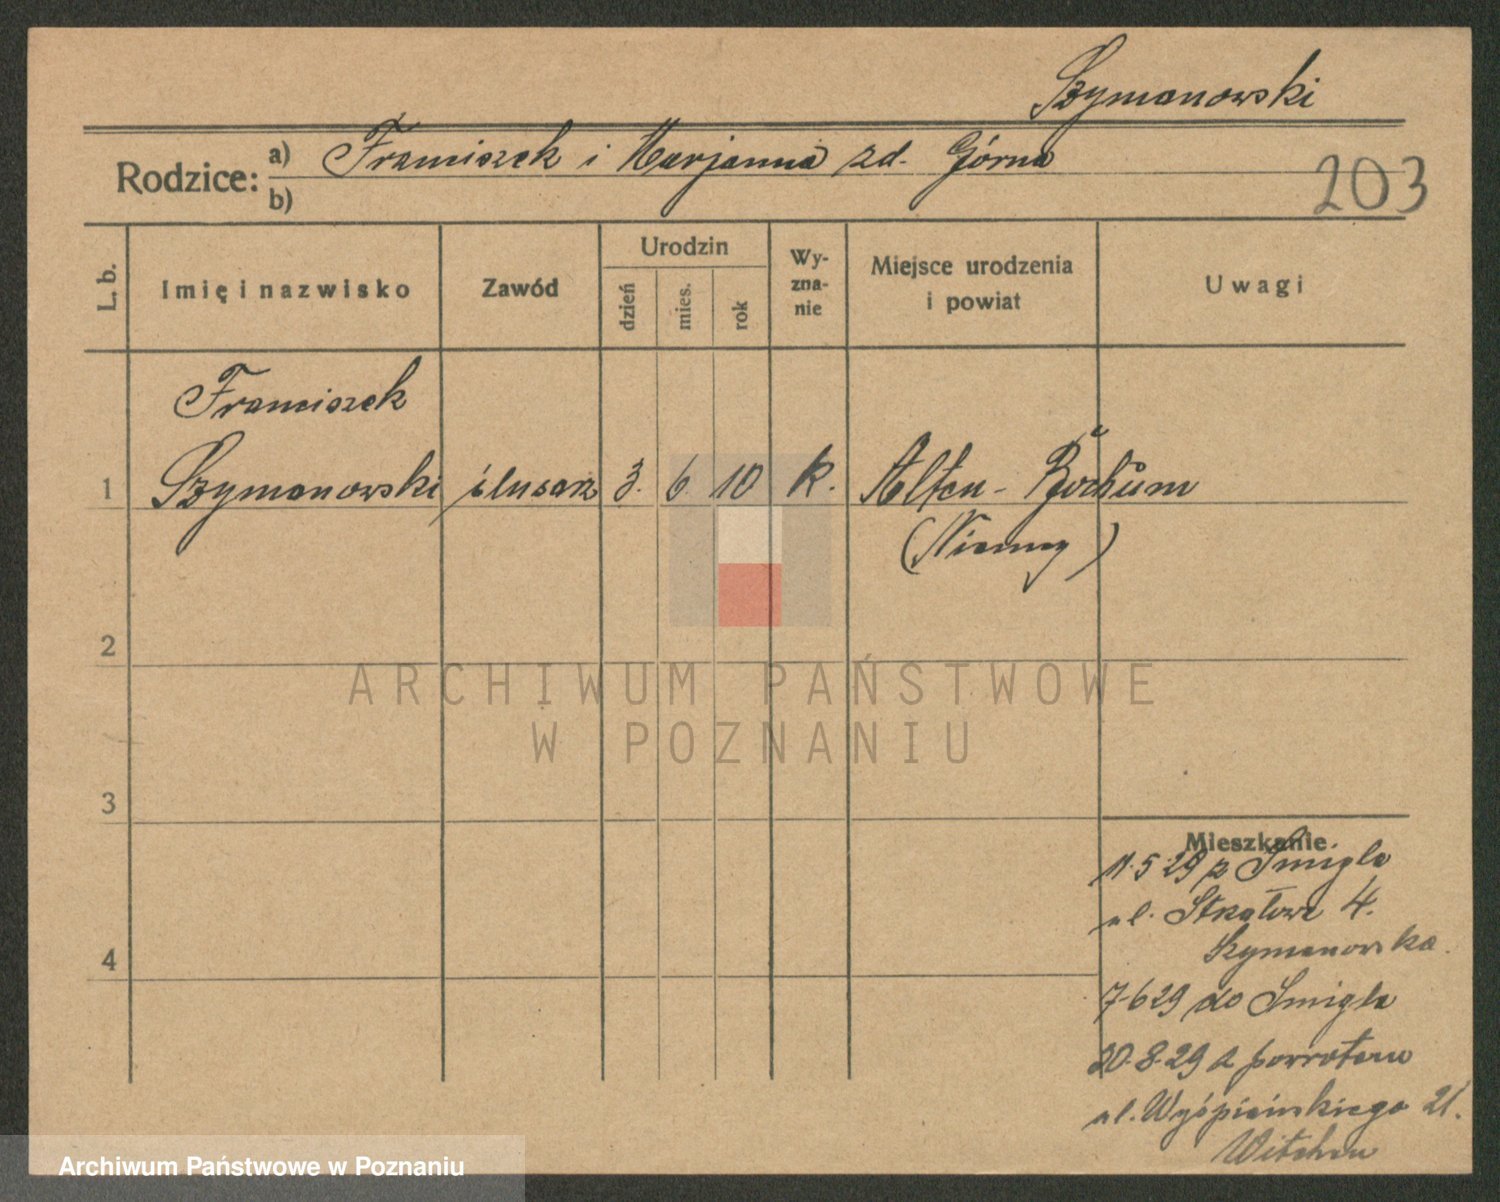 Szymanowski
Rodzice: a) Franciszek i Marjanna zd. Górna
b)
203
L. b.
Imię i nazwisko
Zawód
Urodzin
dzień
mies.
rok
Wy-
zna-
nie
Miejsce urodzenia
i powiat
Uwagi
Franciszek
1 Szymanowski ślusarz 3. 6. 10 k. Alten-Bochum
(Niemcy)
2
ARCHIWUM PAŃSTWOWE
W POZNANIU
3
Mieszkanie
11.5.29 z Śmigla
ul. 4.
Szymanowska.
4
7-6 29 do Śmigla
20.8.29 z powrotem
ul. Wyśpieińskiego 21.
Archiwum Państwowe w Poznaniu